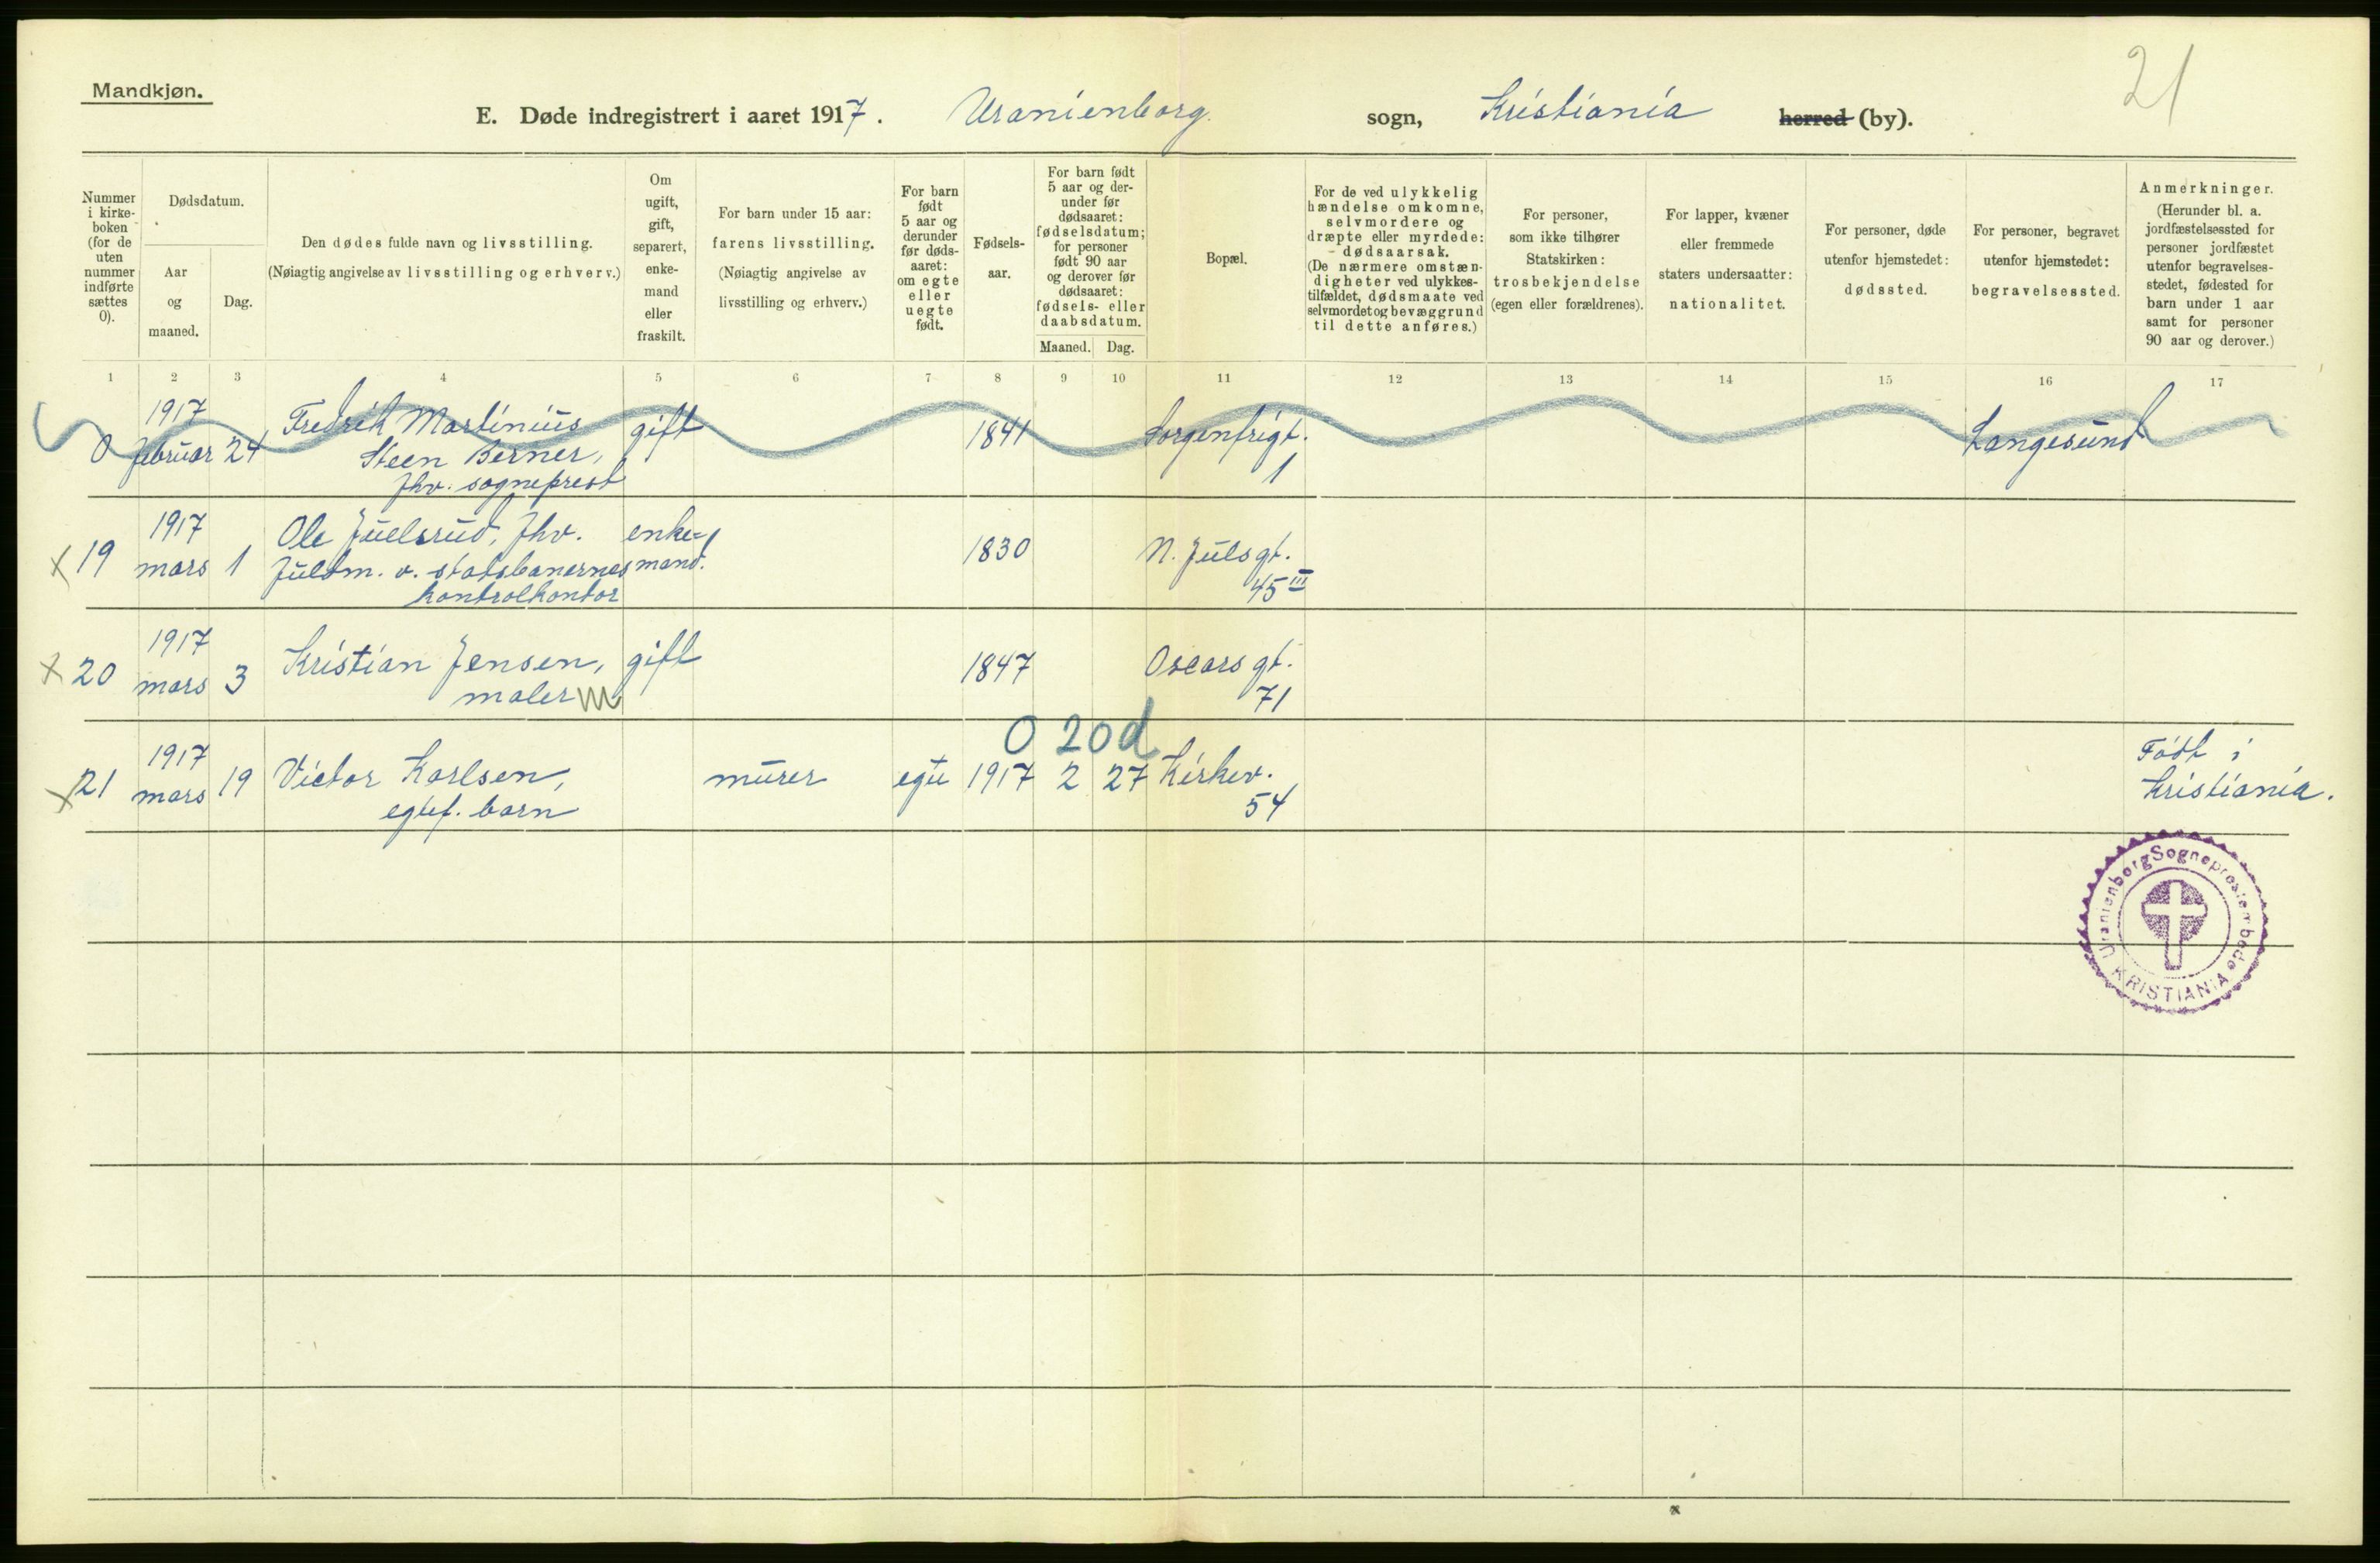 Mandkjøn.
21
E. Døde indregistrert i aaret 1917. Uranienborg sogn, Kristiania herred (by).
Nummer i kirke- boken (for de uten nummer indførte sættes 0).
Dødsdatum.
Aar og maaned.
Dag.
Den dødes fulde navn og livsstilling.
(Nøiagtig angivelse av livsstilling og erhverv.)
Om ugift, gift, separert, enke- mand eller fraskilt.
For barn under 15 aar:
farens livsstilling.
(Nøiagtig angivelse av livsstilling og erhverv.)
For barn født 5 aar og derunder før døds- aaret: om egte eller uegte født.
Fødsels- aar.
For barn født 5 aar og der- under før dødsaaret: fødselsdatum; for personer født 90 aar og derover før dødsaaret: fødsels- eller daabsdatum.
Maaned. Dag.
Bopæl.
For de ved ulykkelig hændelse omkomne, selvmordere og dræpte eller myrdede: dødsaarsak.
(De nærmere omstæn- digheter ved ulykkes- tilfældet, dødsmaate ved selvmordet og bevæggrund til dette anføres.)
For personer, som ikke tilhører Statskirken: trosbekjendelse (egen eller forældrenes).
For lapper, kvæner eller fremmede staters undersaatter: nationalitet.
For personer, døde utenfor hjemstedet: dødssted.
For personer, begravet utenfor hjemstedet: begravelsessted.
Anmerkninger.
(Herunder bl. a. jordfæstelsessted for personer jordfæstet utenfor begravelses- stedet, fødested for barn under 1 aar samt for personer 90 aar og derover.)
1 2 3 4 5 6 7 8 9 10 11 12 13 14 15 16 17
1917
0 februar 24 Fredrik Martinius gift 1841 Sorgenfrigt. Langesund
Steen Berner, 1
fhv. sogneprest
1917
x 19 mars 1 Ole Juelsrud, fhv. enke- 1830 N. Julsgt.
fuldm. v. statsbanernes mand. 45 III
kontrolkontor
1917
x 20 mars 3 Kristian Jensen, gift 1847 Oscarsgt.
maler m 71
0 20d
1917
x 21 mars 19 Victor Karlsen, murer egte 1917 2 27 Kirkev. Født i
egtef. barn 54 Kristiania.
Uranienborg Sogneprestembede
KRISTIANIA